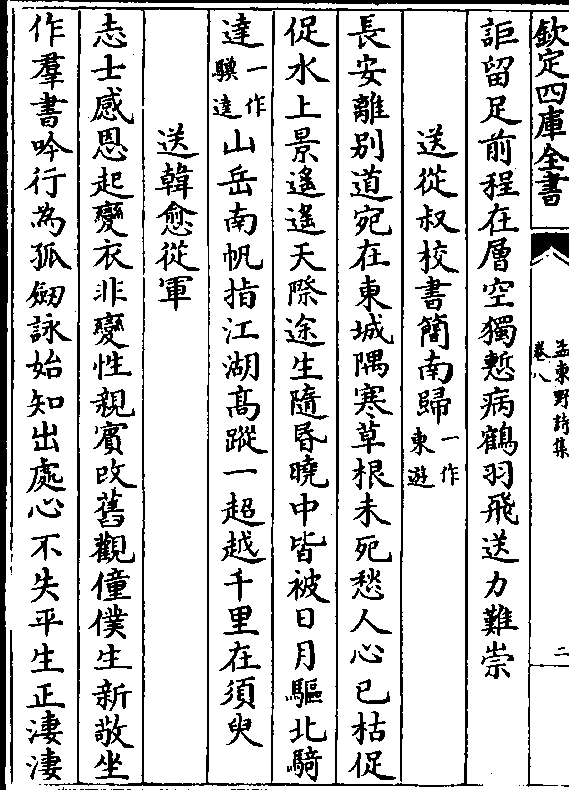 欽定四庫全書
孟東野詩集
卷八
二
詎留足前程在層空獨慙病鶴羽飛送力難崇
送從叔校書簡南歸一作東遊
長安離別道宛在東城隅寒草根未死愁人心已枯促
促水上景遙遙天際途生隨昏曉中皆被日月驅北騎
達一作驥達山岳南帆指江湖髙蹤一超越千里在須臾
送韓愈從軍
志士感恩起變衣非變性親賓改舊觀僮僕生新敬坐
作羣書吟行為孤劒詠始知出處心不失平生正淒淒